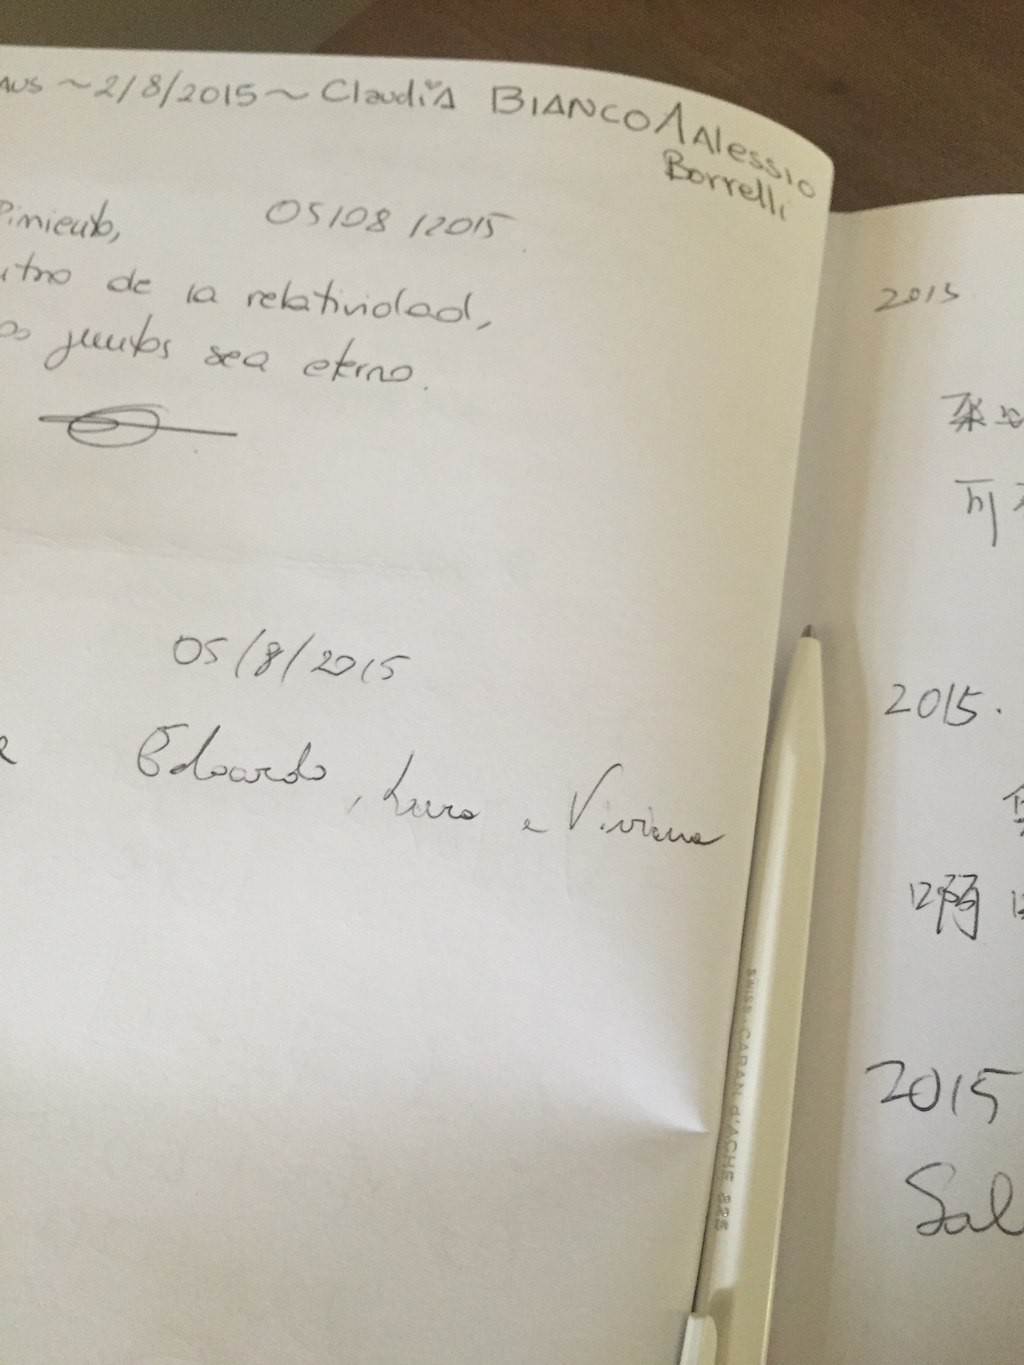 ~2/8/2015~ Claudia BIANCO Alessio
Borrelli
05/08/2015
de la relatividad,
juntos sea eterno.
05/8/2015
Edoardo, Laura e Viviana
SWISS·CARAN d'ACHE 825
2015
可
2015.
啊
2015
Sal